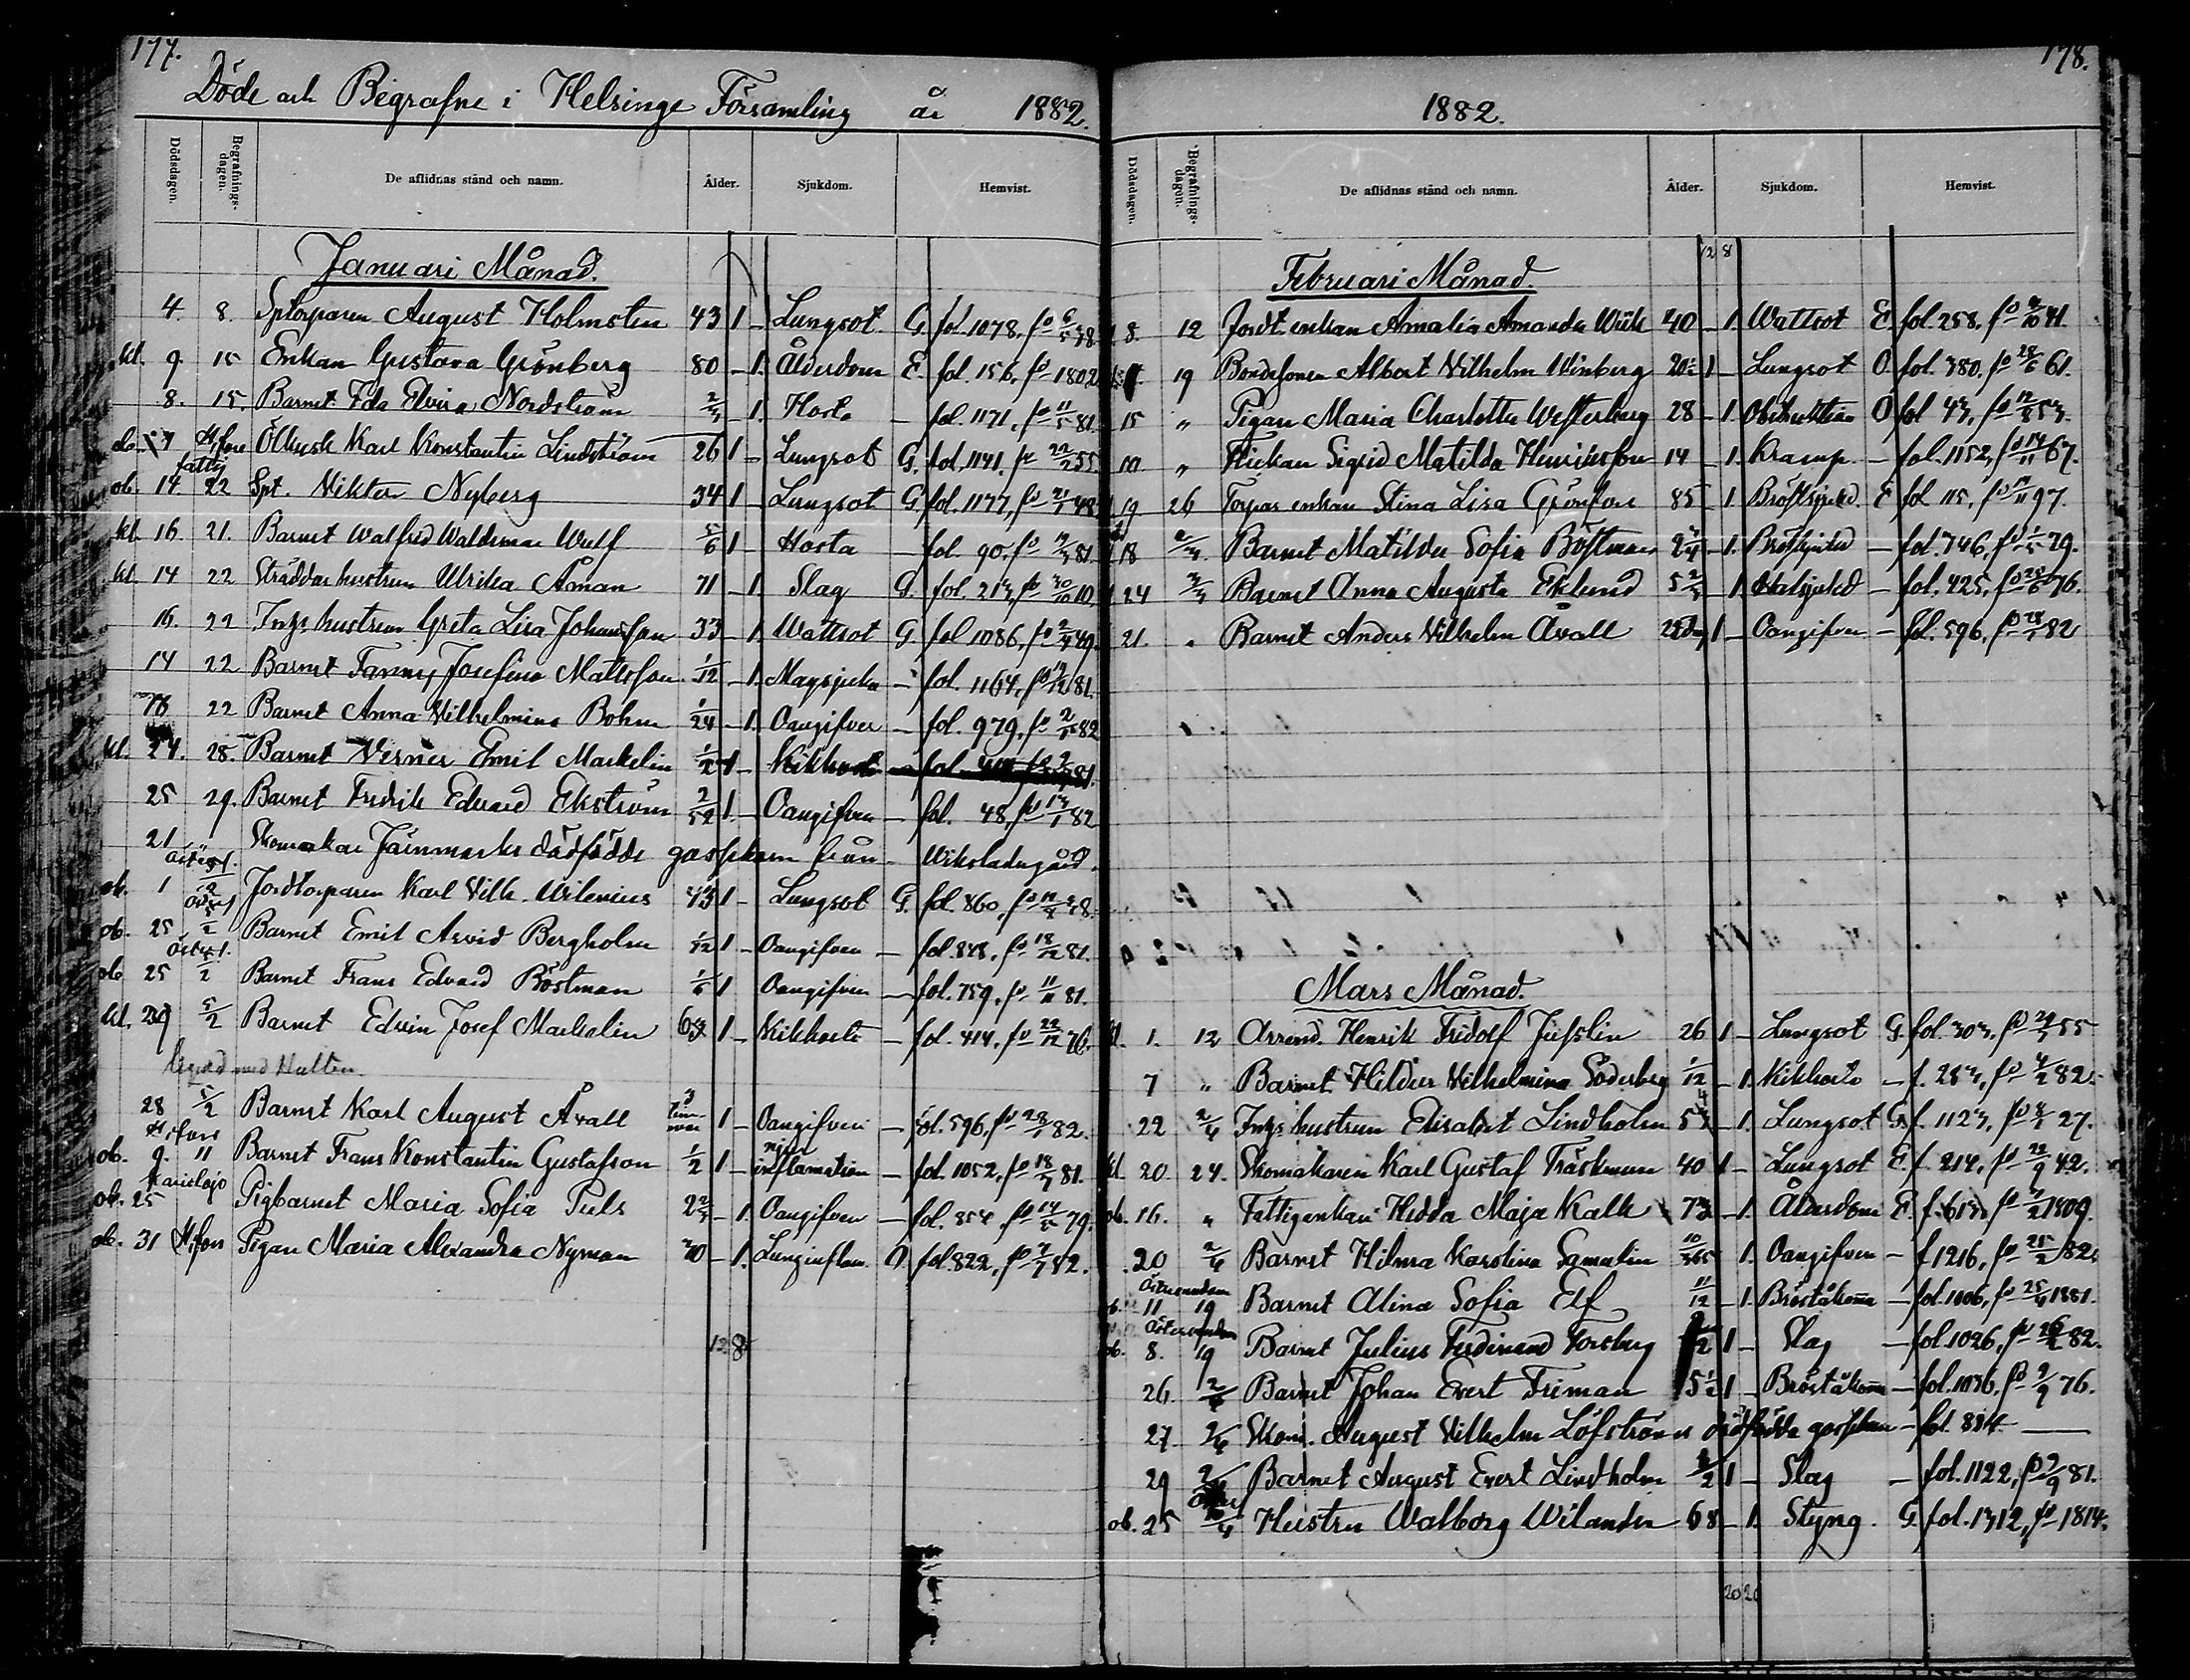 177.
Döde och Begrafne i Helsinge Församling år 1882.
Dödsdagen. Begrafnings-dagen. De aflidnas stånd och namn. Ålder. Sjukdom. Hemvist.
Januari Månad.
4. 8. Sptorparen August Holmsten 43 1 – Lungsot G. fol. 1078. fö 6/5 38
kl. 9 15 Enkan Gustava Grönberg 80 – 1. Ålderdom E. fol. 156, fö 1802
8. 15. Barnet Ida Elvira Nordström 2/3 – 1. Hosta – fol. 1171, fö 11/5 81.
ob. 7 H:fors Karl Konstantin Lindström 26 1 – Lungsot G. fol. 1141. fö 22/2 55
fattg
ob. 14. 22 Spt. Viktor Nyberg 34 1 – Lungsot G. fol. 1177, fö 21/1 48
kl. 16. 21. Barnet Walfrid Waldemar Wulf 5/6 1 – Hosta – fol. 90. fö 81.
kl. 14 22 Skräddar hustrun Ulrika Åman 71 – 1. Slag G. fol. 213, fö 30/10 10.
16. 22 Inhs. hustrun Greta Lisa Johansson 33 – 1. Wattsot G. fol 1086, fö 49.
14 22 Barnet Fanny Josefina Mattsson 1/12 – 1. Magsjuka – fol. 1164, fö 81.
22 Barnet Anna Vilhelmina Bohm 1/24 – 1. Oangifven – fol. 979, fö 2/1 82
kl. 24. 28. Barnet Verner Emil Markelin 1/2 1 – Kikhosta – fol. 81.
25 29. Barnet Fredrik Edvard Ekström 2/52 1. – Oangifven – fol. 48, fö 13/1 82
21 " Skomakar Järnmarks dödfödde gossebarn från – Wiksladugård.
ob. 1 Jordtorparen Karl Vilh. Wilenius 43 1 – Lungsot G. fol. 860, fö 38.
ob. 25 Barnet Emil Arvid Bergholm 1/12 1 – Oangifven – fol. 848, fö 18/12 81.
ob 25 Barnet Frans Edvard Böstman 1/6 1 Oangifven – fol. 759. fö 11/11 81.
kl. 29 5/2 Barnet Edvin Josef Markelin 1 – Kikhosta – fol. 414, fö 22/12 76.
28 5/2 Barnet Karl August Åvall 3 timmar 1 – Oangifven – fol. 596, fö 28/1 82.
H:fors
ob. 9. 11 Barnet Frans Konstantin Gustafson 1/2 1 – inflamation – fol. 1052, fö 18/7 81.
Karislojo
ob. 25 Pigbarnet Maria Sofia Puls 2 2/3 – 1. Oangifven – fol. 854, fö 14/5 79.
ob. 31 H:fors Pigan Maria Alexandra Nyman – 1. Lunginflam. O fol. 822, fö
12 8
178.
1882.
Dödsdagen. Begrafnings-dagen. De aflidnas stånd och namn. Ålder. Sjukdom. Hemvist.
12 8
Februari Månad.
8. 12 Jordt. enkan Amalia Amanda Wiik 40 – 1. Wattsot E. fol. 258. fö 41.
19 Bondesonen Albert Vilhelm Winberg 20 1/2 1 – Lungsot O. fol. 380, fö 28/6 61.
15 " Pigan Maria Charlotta Westerberg 28 – 1. Obstruktion O fol 43, fö 12/8 53.
10 " Flickan Sigrid Matilda Henriksson 14 – 1. Kramp. – fol. 1152, fö 14/11 67.
19 26 Torpar enkan Stina Lisa Grönfors 85 – 1. Bröstsjukd. E fol. 115. fö 97.
18 2/3. Barnet Matilda Sofia Böstman 2 3/4 – 1. Bröstsjukd – fol. 746, fö 1/5 79.
24 3/3 Barnet Anna Augusta Eklund 5 2/3 – 1. Halssjukd – fol. 425, fö 25/6 76.
21. " Barnet Anders Vilhelm Åvall 1 – Oangifven – fol. 596, fö 28/1 82
Mars Månad.
kl. 1. 12 Arrend. Henrik Fridolf Jusslin 26 1 – Lungsot G. fol. 303, fö 55
7 " Barnet Hildur Vilhelmina Söderberg 1/12 – 1. Kikhosta – f. 283, fö 4/2 82.
22 2/4 Inhs. hustrun Elisabet Lindholm – 1. Lungsot G. f. 1123, fö 27.
kl. 20. 24. Skomakaren Karl Gustaf Träskman 40 1 – Lungsot E. f. 214, fö 22/9 42.
ob. 16. " Fattigenkan Hedda Maja Kalk 73 – 1. Ålderdom E. f. 613, fö 1809.
20 2/4 Barnet Hilma Karolina Samulin 10/365 1. Oangifven – f. 1216, fö 25/2 82.
Östersundom
ob. 11 19 Barnet Alina Sofia Elf 11/12 – 1. Bröståkomma – fol. 1006, fö 25/4 1881.
Östersundom
ob. 8. 19 Barnet Julius Ferdinand Forsberg 1 – Slag – fol. 1026, fö 82.
26. 2/4 Barnet Johan Evert Friman 5 1/2 1 – Bröståkomma – fol. 1036, fö 9/9 76.
27. 2/4 Skom. August Vilhelm Löfströms dödfödda gossebarn – fol. 884. –
29 2/4 Barnet August Evert Lindholm 1/2 1 – Slag – fol. 1122, fö 9/9 81.
ob. 25 Hustru Walborg Wilander 68 – 1. Styng. G. fol. 1312, fö 1814.
20 20